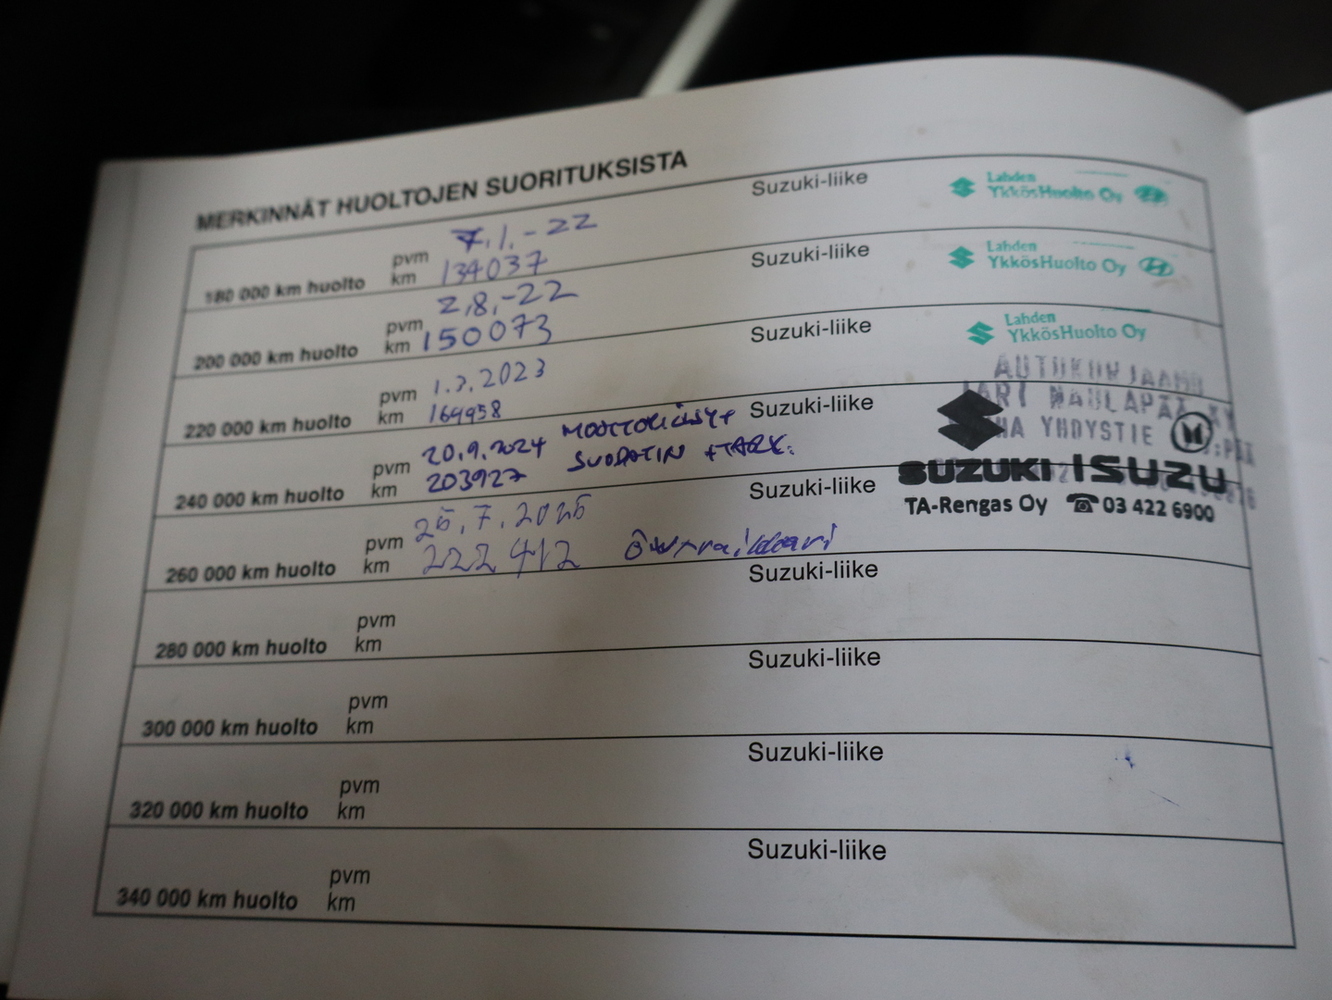 MERKINNÄT HUOLTOJEN SUORITUKSISTA
180 000 km huolto pvm 7.1.-22 Suzuki-liike Lahden
km 134037 YkkösHuolto Oy
200 000 km huolto pvm 2.8.-22 Suzuki-liike Lahden
km 150073 YkkösHuolto Oy
220 000 km huolto pvm 1.3.2023 Suzuki-liike Lahden
km 164958 YkkösHuolto Oy
AUTOKORJAAMO
JARI NAULAPÄÄ KY
YHDYSTIE
240 000 km huolto pvm 20.9.2024 MOOTTORIÖLJY+ Suzuki-liike
km 203927 SUODATIN +TARK.
SUZUKI ISUZU
TA-Rengas Oy ☎ 03 422 6900
260 000 km huolto pvm 25.7.2025 Suzuki-liike
km 222 412
280 000 km huolto pvm Suzuki-liike
km
300 000 km huolto pvm Suzuki-liike
km
320 000 km huolto pvm Suzuki-liike
km
340 000 km huolto pvm Suzuki-liike
km